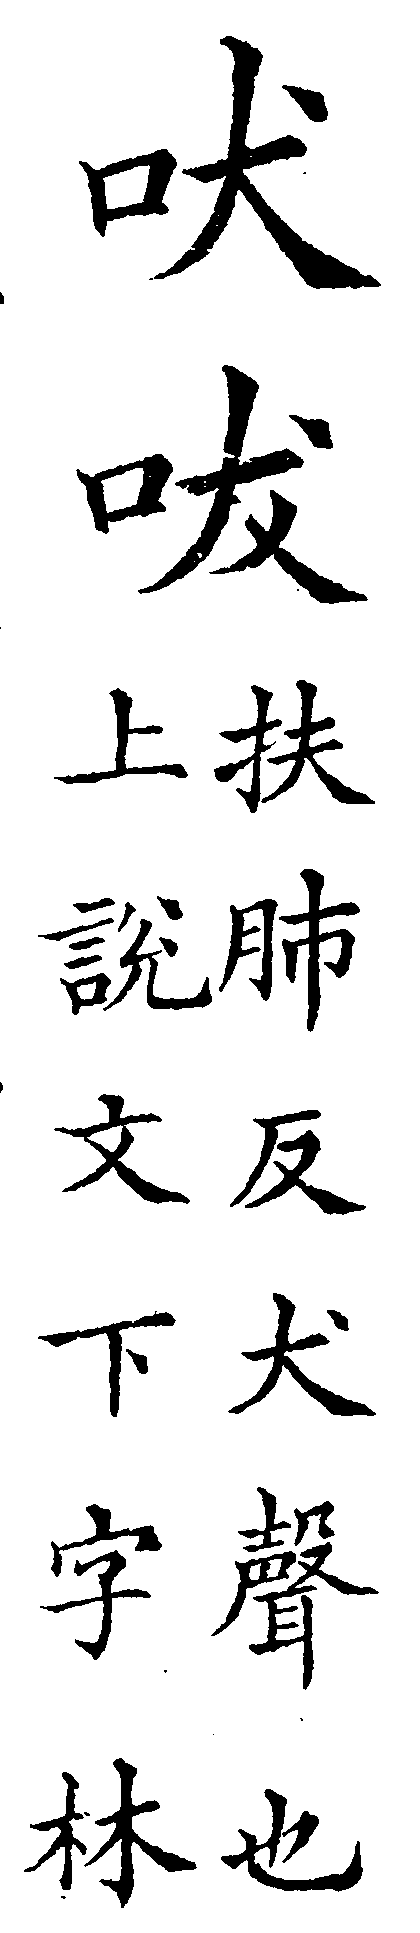 吠
咙
扶肺反犬聲也
上說文下字林